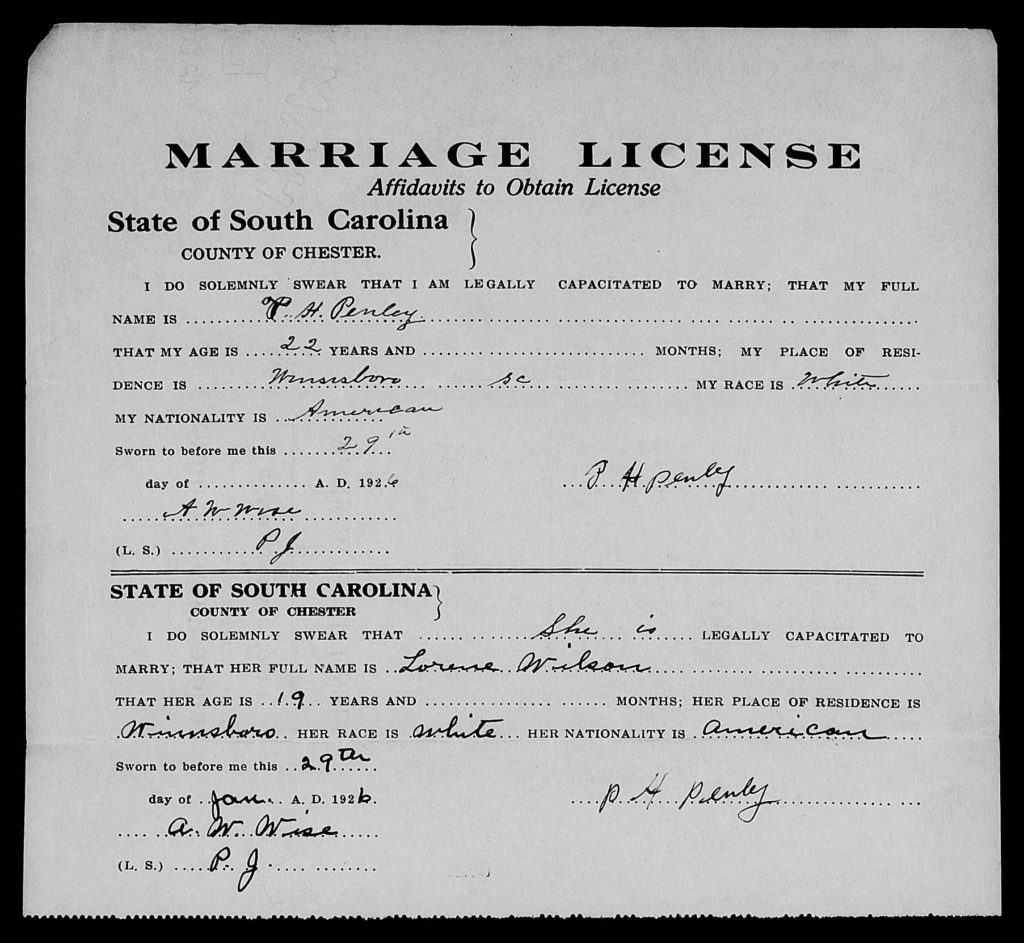 MARRIAGE LICENSE
Affidavits to Obtain License
State of South Carolina
COUNTY OF CHESTER.
I DO SOLEMNLY SWEAR THAT I AM LEGALLY CAPACITATED TO MARRY; THAT MY FULL
NAME IS P. H. Penley
THAT MY AGE IS 22 YEARS AND MONTHS; MY PLACE OF RESI-
DENCE IS Winnsboro SC MY RACE IS White
MY NATIONALITY IS American
Sworn to before me this 29th
day of A. D. 1926 P H Penley
A W Wise
(L. S.) P J
STATE OF SOUTH CAROLINA
COUNTY OF CHESTER
I DO SOLEMNLY SWEAR THAT She is LEGALLY CAPACITATED TO
MARRY; THAT HER FULL NAME IS Lorene Wilson
THAT HER AGE IS 19 YEARS AND MONTHS; HER PLACE OF RESIDENCE IS
Winnsboro HER RACE IS White HER NATIONALITY IS American
Sworn to before me this 29th
day of Jan. A. D. 1926. P H Penley
A. W. Wise
(L. S.) P. J.